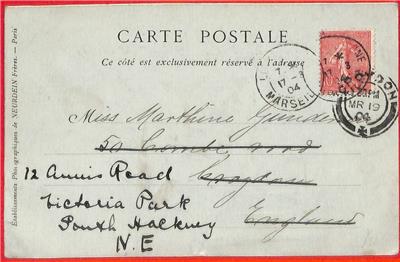 CARTE POSTALE
Ce côté est exclusivement réservé à l'adresse
17-3
04
MARSEIL
MR 19
04
Miss Marthine
50 Combe road
12 Annis Road
Croydon
Victoria Park
England
South Hackney
N.E
Établissements Photographiques de NEURDEIN Frères. — Paris